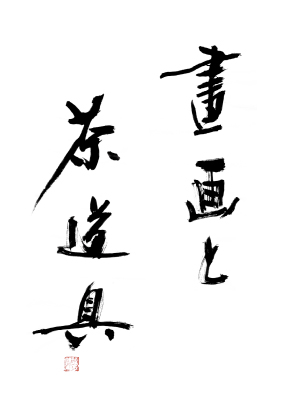 書画と
茶道具